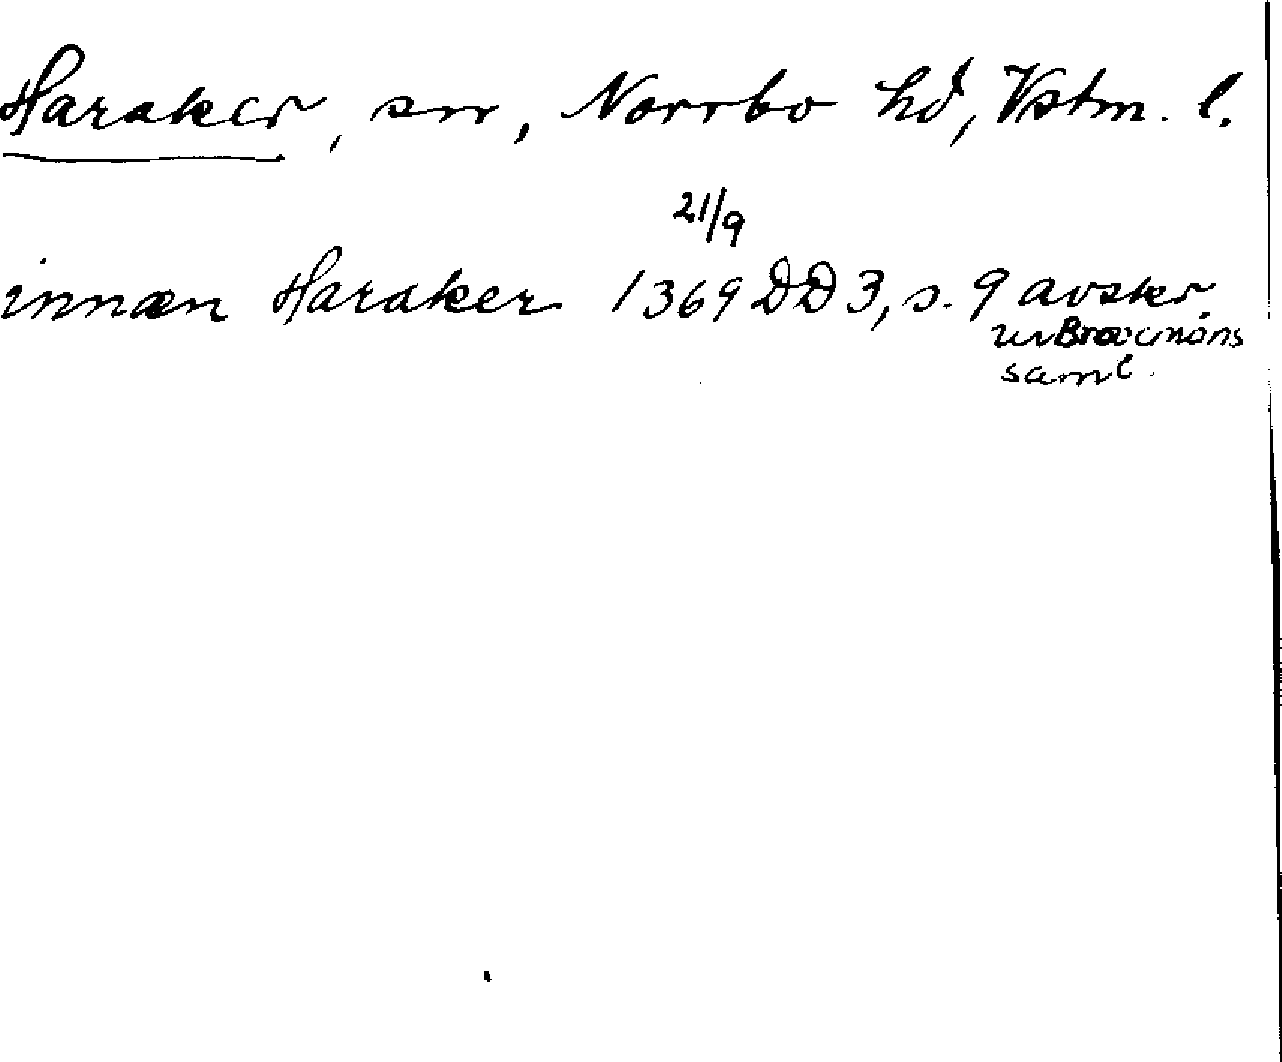 Haraker, sn, Norrbo hd, Vstm. l.
21/9
innæn Haraker 1369 DD 3, s. 9 avskr.
ur Brocmans
saml.